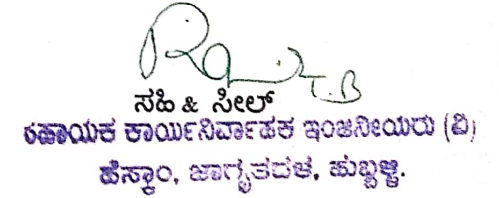 ಸಹಿ & ಸೀಲ್
ಸಹಾಯಕ ಕಾರ್ಯನಿರ್ವಾಹಕ ಇಂಜಿನೀಯರು (ವಿ)
ಹೆಸ್ಕಾಂ, ಜಾಗೃತದಳ, ಹುಬ್ಬಳ್ಳಿ.